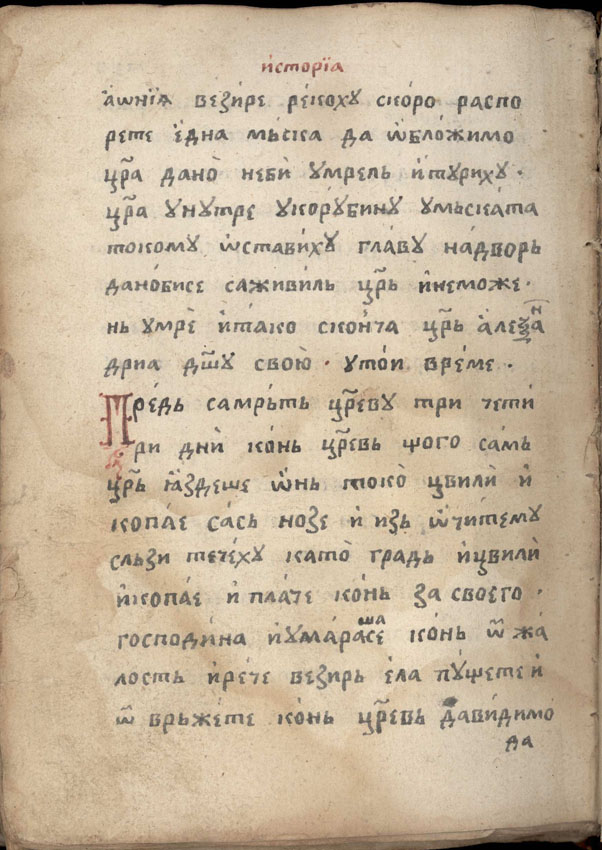 исторїа
аѡнїѧ везире рекохꙋ скоро распо
рете една мьска да ѡбложимо
цр҃а дано неби умрель итурихꙋ ·
цр҃а унутре укорубину умьската
токому ѡставихꙋ главу надворь
данобисе саживиль цр҃ь инеможе ·
нь умре итако сконча цр҃ь алеѯан
дриа дш҃ꙋ свою · утои време ·
Предь самрьть цр҃еву три чети
ри дни конь цр҃евь щого самь
цр҃ь ꙗздеше ѡнь токо цвили и
копае сась нозе и изь ѡчитему
сльзи течехꙋ като градь ицвили
икопае и плаче конь за своего ·
господина иумарашасе конь ѿ жа
лость ирече везирь ела пущете и
ѿ врьжете конь цр҃евь давидимо
да